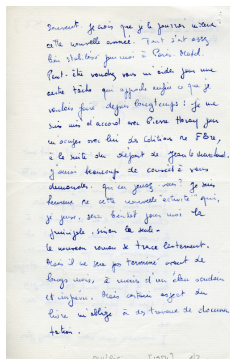 souvent. Je crois que je
cette nouvelle année. Tout s'est assez
bien stabilisé pour moi à Paris-Match.
Peut-être voudrez-vous m'aider pour une
autre tâche qui apporte enfin ce que je
voulais faire depuis longtemps : je me
suis mis d'accord avec Pierre Horay pour
m'occuper avec lui des Editions de Flore,
à la suite du départ de Jean le Marchand.
J'aurai beaucoup de conseils à vous
demander. Qu'en pensez-vous ? Je suis
heureux de cette nouvelle activité qui,
je pense, sera bientôt pour moi la
principale, sinon la seule.
Le nouveau roman se trace lentement.
Mais il ne sera pas terminé avant de
longs mois, à moins d'un élan soudain
et imprévu. Mais certain aspect du
livre m'oblige à des travaux de documen
tation.